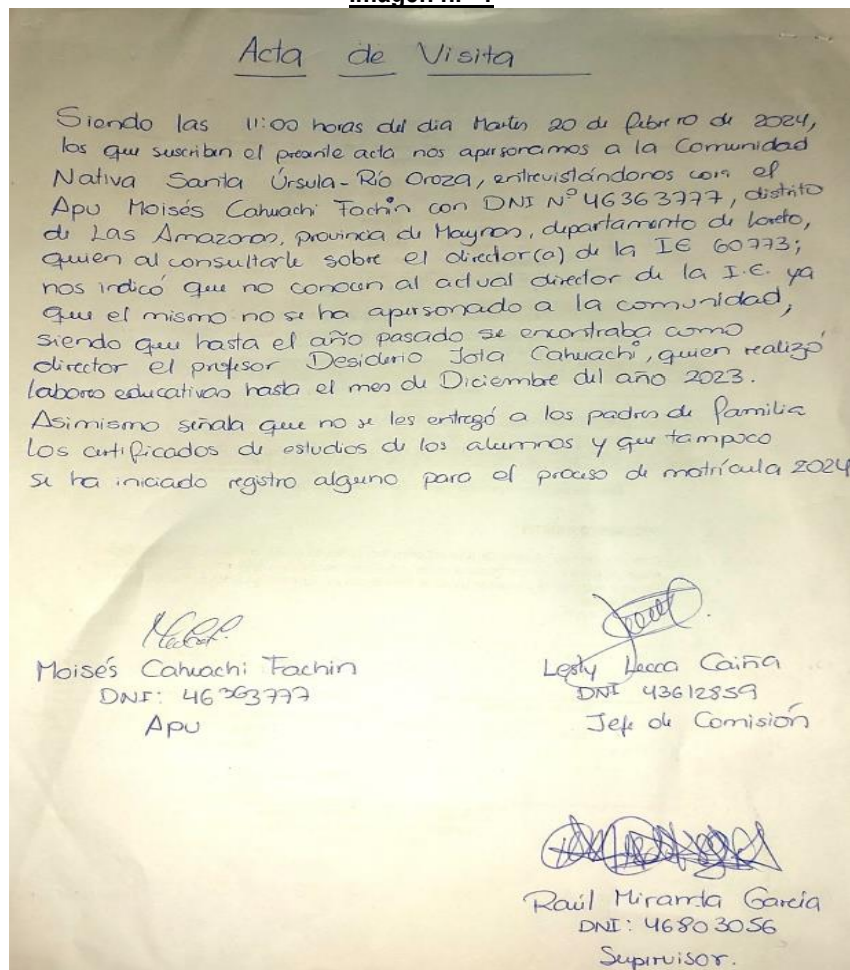 Acta de Visita
Siendo las 11:00 horas del dia Martes 20 de febrero de 2024,
los que suscriben el presente acta nos apersonamos a la Comunidad
Nativa Santa Úrsula-Río Oroza, entrevistándonos con el
Apu Moisés Cahuachi Fachin con DNI N° 46363777, distrito
de Las Amazonas, provincia de Maynas, departamento de Loreto,
quien al consultarle sobre el director(a) de la IE 60773;
nos indicó que no conocen al actual director de la I.E. ya
que el mismo no se ha apersonado a la comunidad,
siendo que hasta el año pasado se encontraba como
director el profesor Desiderio Jota Cahuachi, quien realizó
labores educativas hasta el mes de Diciembre del año 2023.
Asimismo señala que no se les entregó a los padres de familia
los certificados de estudios de los alumnos y que tampoco
se ha iniciado registro alguno para el proceso de matrícula 2024
Moisés Cahuachi Fachin
DNI: 46363777
Apu
Lesly Lecca Caiña
DNI 43612859
Jefe de Comisión
Raúl Miranda García
DNI: 46803056
Supervisor.